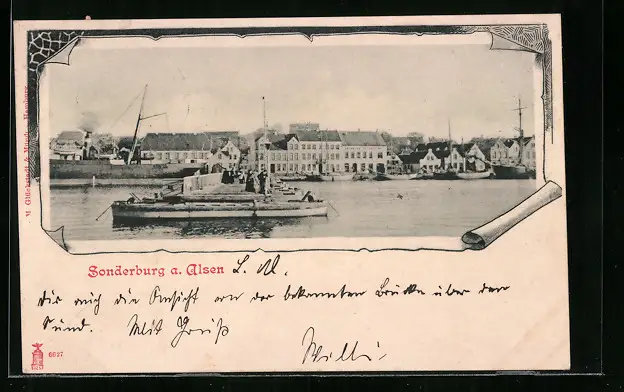 M. Glückstadt & Münden, Hamburg
Sonderburg a. Alsen L. M.
Dir auch die Ansicht von der bekannten Brücke über den
Sund. Mit Gruß
Willi
6627